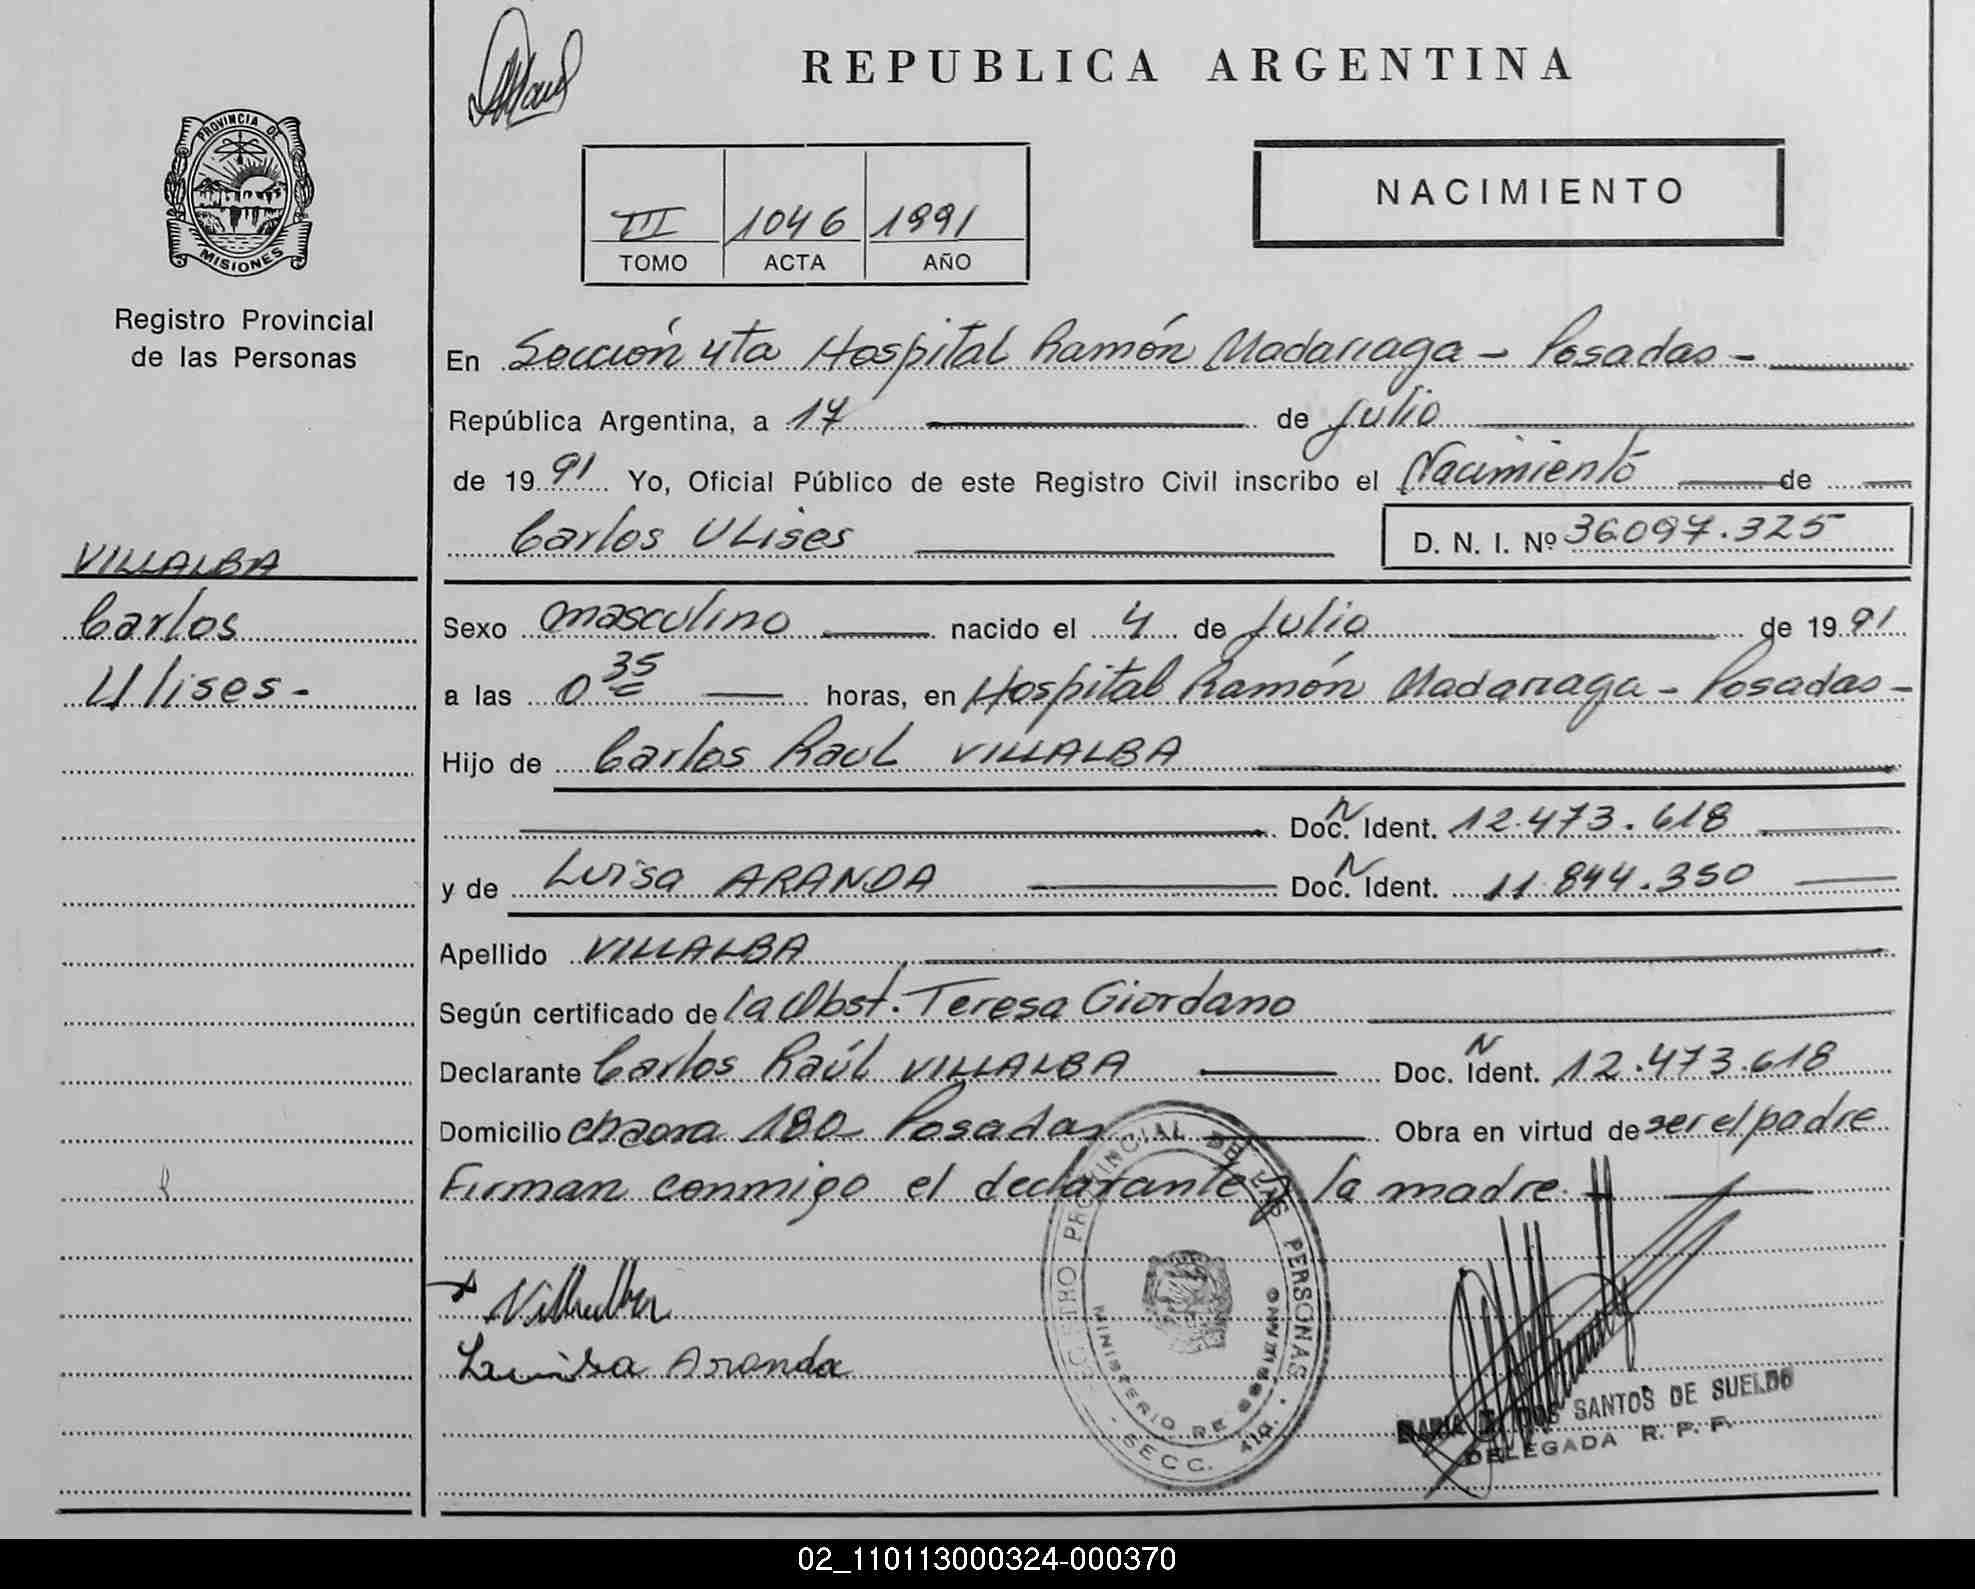 REPUBLICA ARGENTINA
PROVINCIA DE
MISIONES
Registro Provincial
de las Personas
NACIMIENTO
III 1046 1991
TOMO ACTA AÑO
En Sección 4ta Hospital Ramón Madariaga - Posadas -
República Argentina, a 17 de Julio
de 1991 Yo, Oficial Público de este Registro Civil inscribo el Nacimiento de
Carlos Ulises D. N. I. Nº 36.097.325
VILLALBA
Carlos
Ulises -
Sexo masculino nacido el 4 de Julio de 1991
a las 0 35 horas, en Hospital Ramón Madariaga - Posadas -
Hijo de Carlos Raul VILLALBA
Doc. N Ident. 12.473.618
y de Luisa ARANDA Doc. N Ident. 11.844.350
Apellido VILLALBA
Según certificado de la Obst. Teresa Giordano
Declarante Carlos Raúl VILLALBA Doc. N Ident. 12.473.618
Domicilio chacra 180 Posadas Obra en virtud de ser el padre
Firman conmigo el declarante y la madre.
Villalba
Luisa Aranda
REGISTRO PROVINCIAL DE LAS PERSONAS
MINISTERIO DE GOBIERNO
SECC. 4ta.
MARIA DOS SANTOS DE SUELDO
DELEGADA R. P. P.
02_110113000324-000370